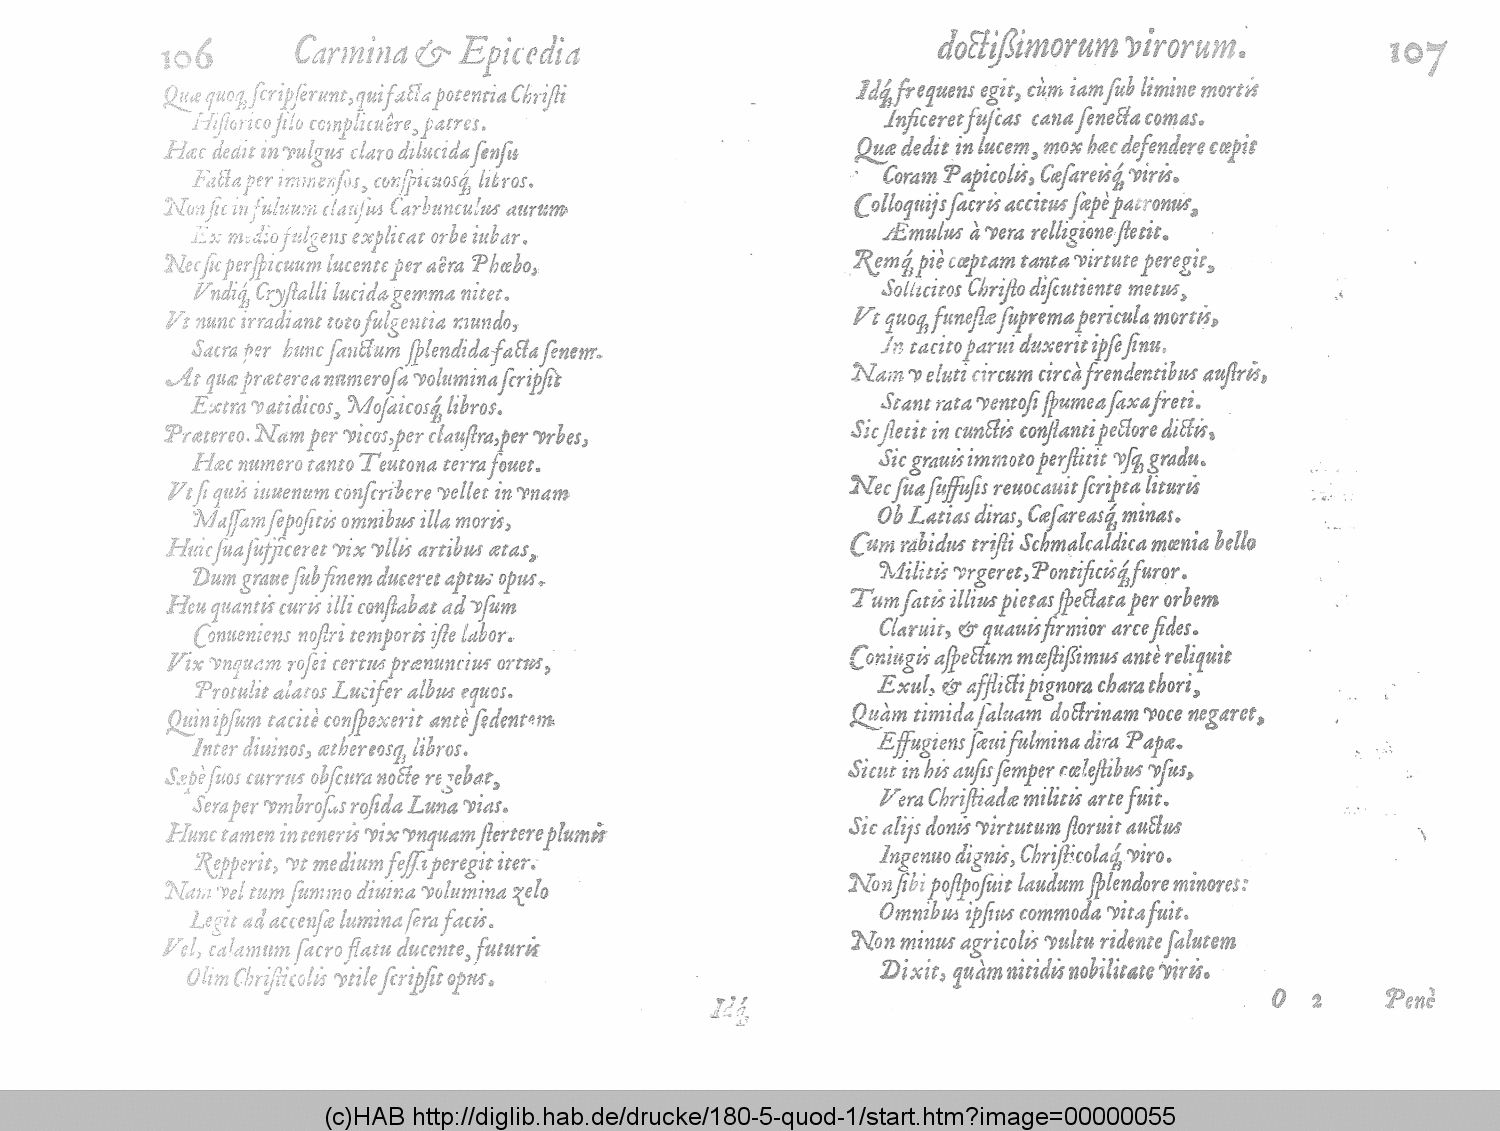 106 Carmina & Epicedia
Quæ quoq; ſcripſerunt, qui facta potentia Chriſti
Hiſtorico filo complicuêre, patres.
Hæc dedit in vulgus claro dilucida ſenſu
Facta per immenſos, conſpicuosq́; libros.
Non ſic in fuluum clauſus Carbunculus aurum
Ex medio fulgens explicat orbe iubar.
Nec ſic perſpicuum lucente per aêra Phœbo,
Vndiq́; Cryſtalli lucida gemma nitet.
Vt nunc irradiant toto fulgentia mundo,
Sacra per hunc ſanctum ſplendida facta ſenem.
At quæ præterea numeroſa volumina ſcripſit
Extra vatidicos, Moſaicosq́; libros.
Prætereo. Nam per vicos, per clauſtra, per vrbes,
Hæc numero tanto Teutona terra fouet.
Vt ſi quis iuuenum conſcribere vellet in vnam
Maſſam ſepoſitis omnibus illa moris,
Huic ſua ſufficeret vix vllis artibus ætas,
Dum graue ſub finem duceret aptus opus.
Heu quantis curis illi conſtabat ad vſum
Conueniens noſtri temporis iſte labor.
Vix vnquam roſei certus prænuncius ortus,
Protulit alatos Lucifer albus equos.
Quin ipſum tacitè conſpexerit antè ſedentem
Inter diuinos, æthereosq; libros.
Sæpè ſuos currus obſcura nocte regebat,
Sera per vmbroſas roſida Luna vias.
Hunc tamen in teneris vix vnquam ſtertere plumis
Repperit, vt medium feſſa peregit iter.
Nam vel tum ſummo diuina volumina zelo
Legit ad accenſæ lumina ſera facis.
Vel, calamum ſacro flatu ducente, futuris
Olim Chriſticolis vtile ſcripſit opus.
Idq́;
doctiſſimorum virorum. 107
Idq́; frequens egit, cùm iam ſub limine mortis
Inficeret fuſcas cana ſenecta comas.
Quæ dedit in lucem, mox hæc defendere cœpit
Coram Papicolis, Cæſareisq́; viris.
Colloquijs ſacris accitus ſæpè patronus,
Æmulus à vera relligione ſtetit.
Remq́; piè cœptam tanta virtute peregit,
Sollicitos Chriſto diſcutiente metus,
Vt quoq; funeſtæ ſuprema pericula mortis,
In tacito parui duxerit ipſe ſinu.
Nam veluti circum circà frendentibus auſtris,
Stant rata ventoſi ſpumea ſaxa freti.
Sic ſtetit in cunctis conſtanti pectore dictis,
Sic grauis immoto perſtitit vſq; gradu.
Nec ſua ſuffuſis reuocauit ſcripta lituris
Ob Latias diras, Cæſareasq́; minas.
Cum rabidus triſti Schmalcaldica mœnia bello
Militis vrgeret, Pontificisq́; furor.
Tum ſatis illius pietas ſpectata per orbem
Claruit, & quauis firmior arce fides.
Coniugis aſpectum mœſtiſſimus antè reliquit
Exul, & afflicti pignora chara thori,
Quàm timida ſaluam doctrinam voce negaret,
Effugiens ſæui fulmina dira Papæ.
Sicut in his auſis ſemper cœleſtibus vſus,
Vera Chriſtiadæ militis arte fuit.
Sic alijs donis virtutum floruit auctus
Ingenuo dignis, Chriſticolaq́; viro.
Non ſibi poſtpoſuit laudum ſplendore minores:
Omnibus ipſius commoda vita fuit.
Non minus agricolis vultu ridente ſalutem
Dixit, quàm nitidis nobilitate viris.
O 2 Penè
(c)HAB http://diglib.hab.de/drucke/180-5-quod-1/start.htm?image=00000055